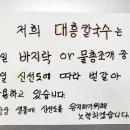 저희 대흥칼국수는
일 바지락 or 물총조개 중
일 신선도에 따라 번갈아
용하고 있습니다.
항상 생물에 신선도를 유지하기위해
노력하겠습니다.